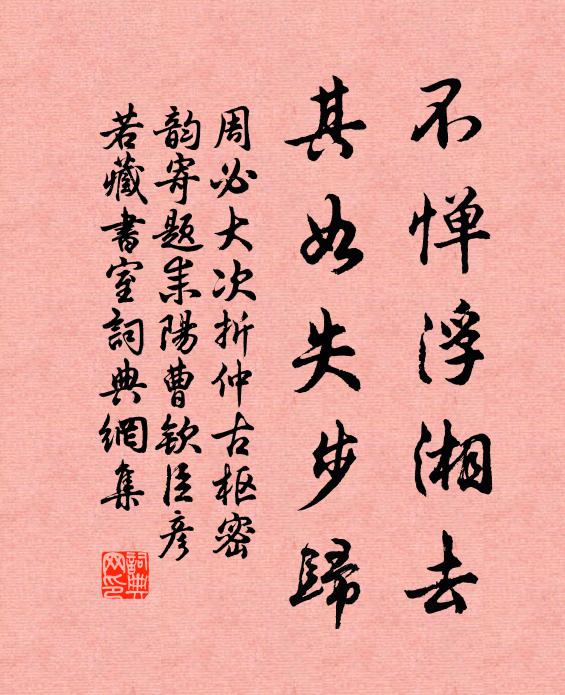 不惮浮湘去
其如失步歸
周必大次折仲古枢密
韵寄题耒陽曹钦臣彦
若藏書室詞典網集
詞典网印